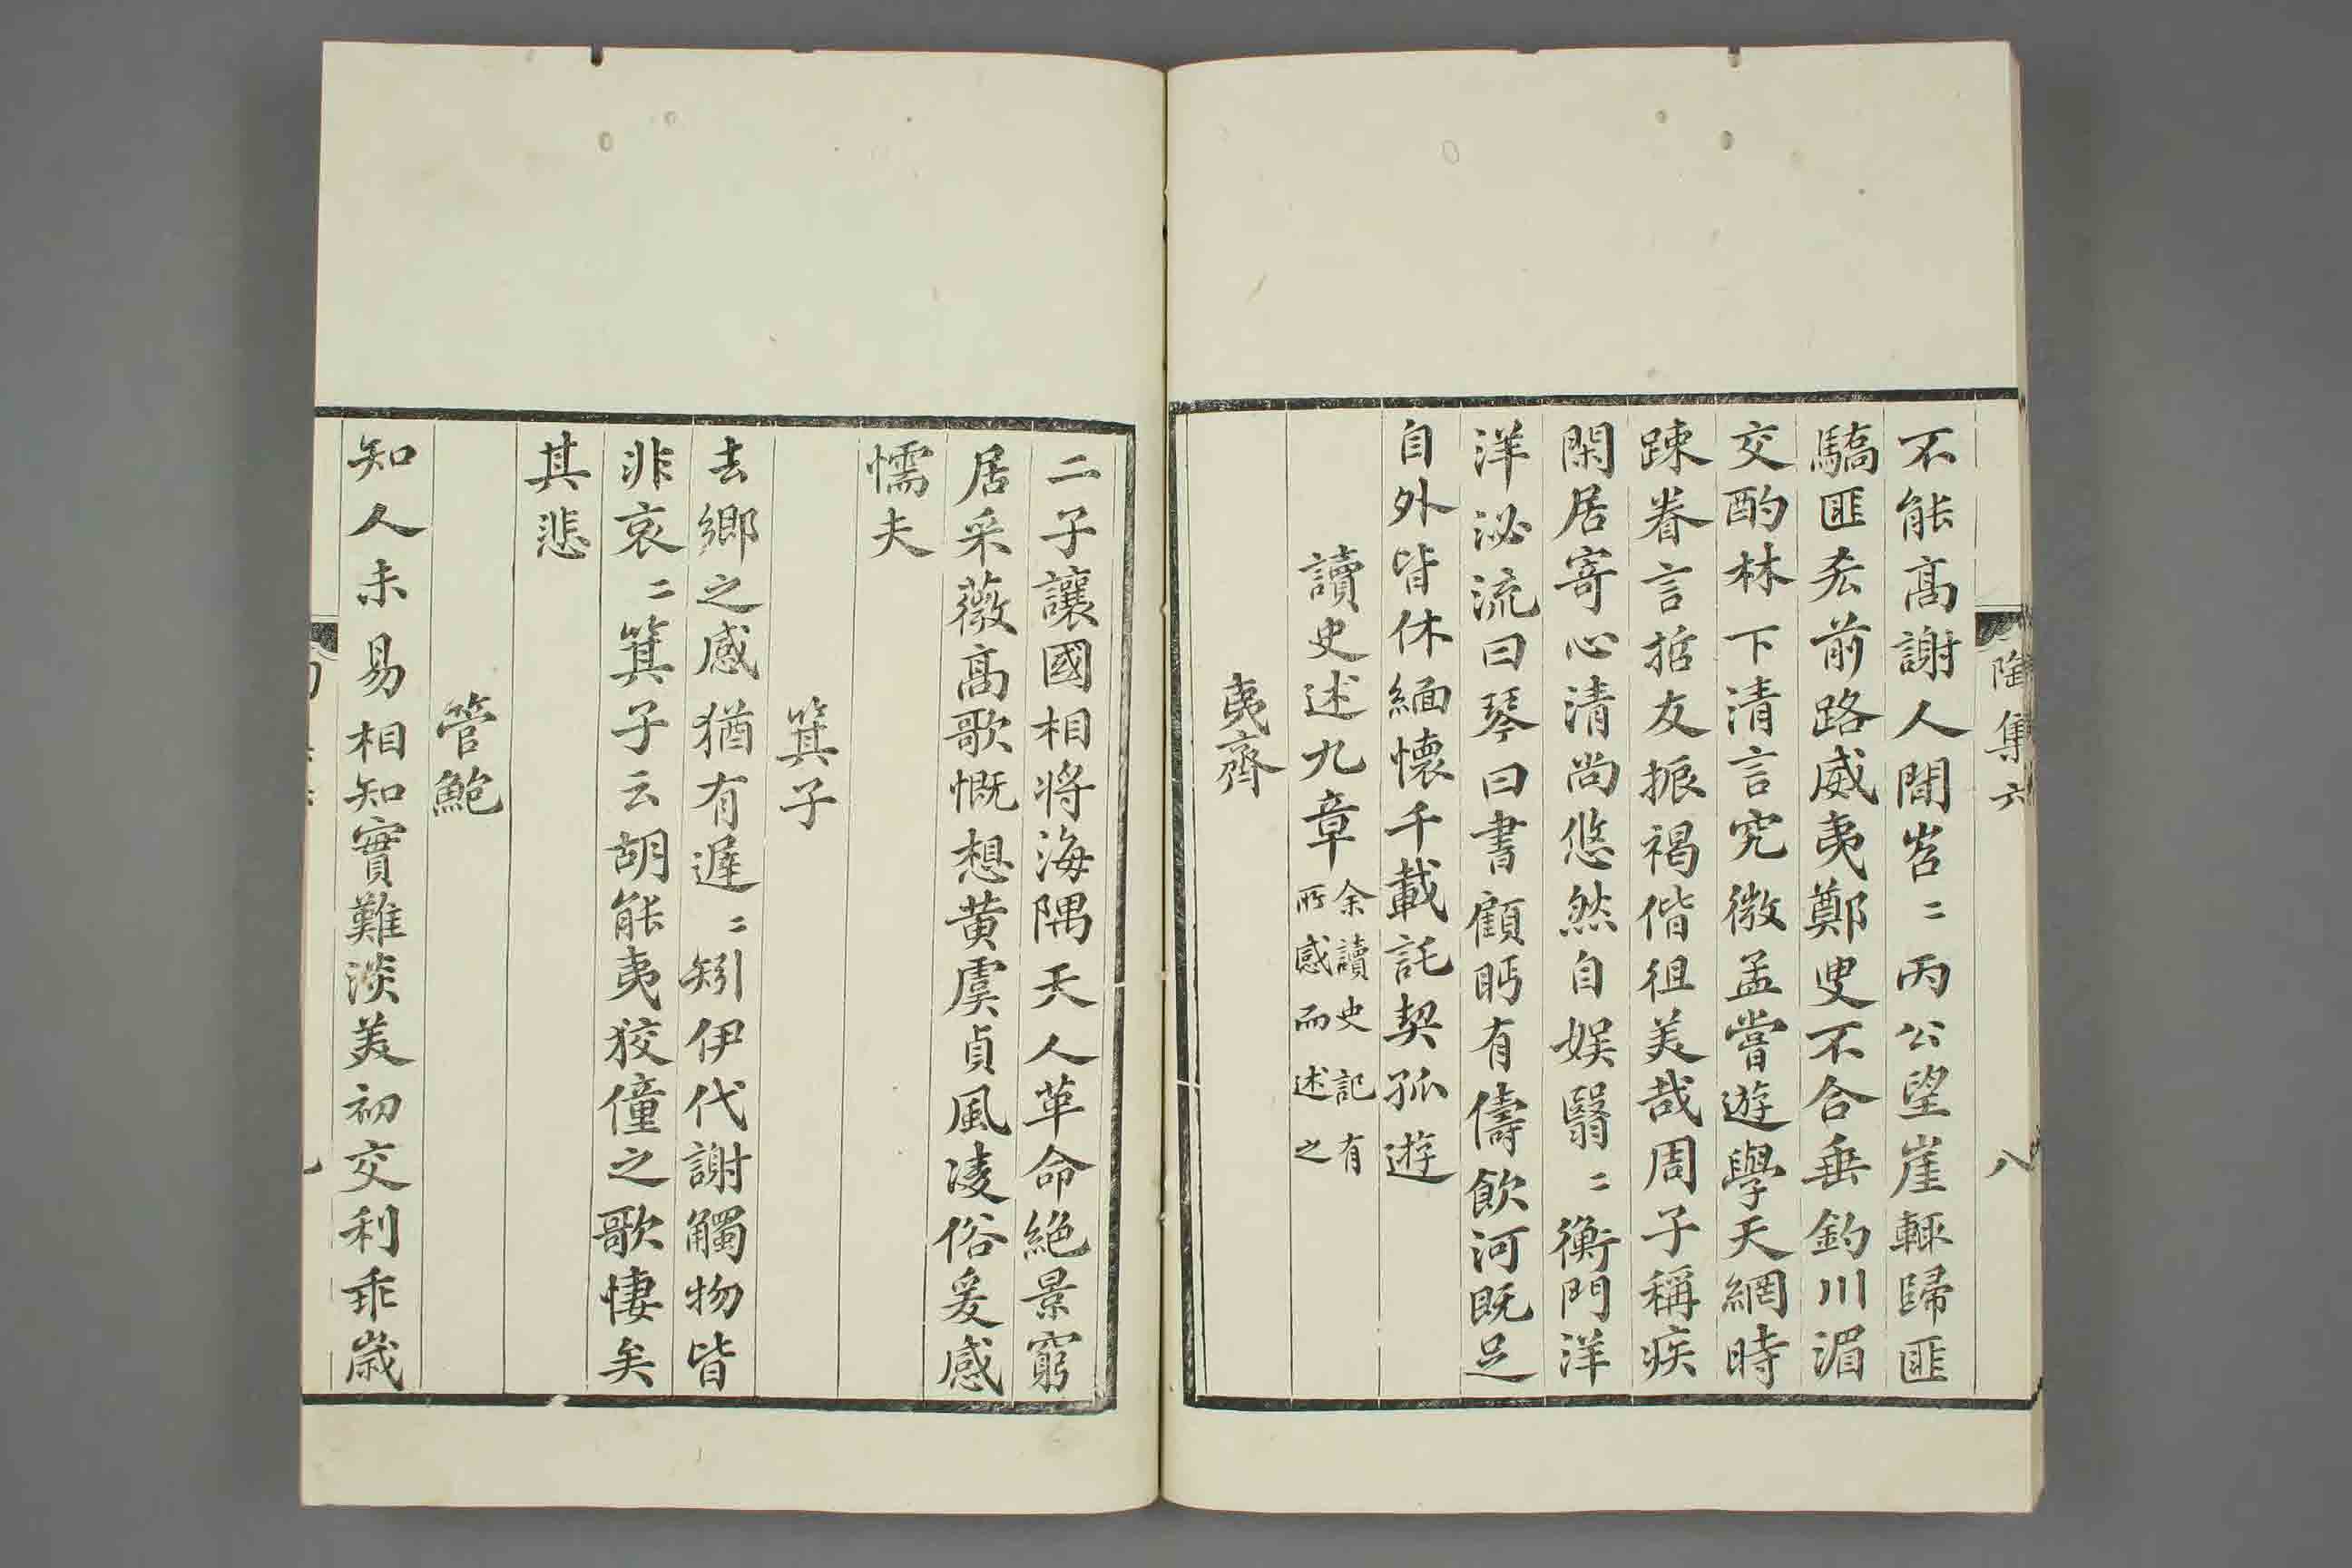 陶集六
八
不能高謝人間岧〻丙公望崖輒歸匪
驕匪吝前路威夷鄭叟不合垂釣川湄
交酌林下清言究微孟嘗遊學天網時
踈眷言哲友振褐偕徂美哉周子稱疾
閑居寄心清尚悠然自娛翳〻衡門洋
洋泌流曰琴曰書顧眄有儔飲河既足
自外皆休緬懷千載託契孤遊
讀史述九章
余讀史記有
所感而述之
夷齊
二子讓國相將海隅天人革命絕景窮
居采薇高歌慨想黃虞貞風淩俗爰感
懦夫
箕子
去鄉之感猶有遲〻矧伊代謝觸物皆
非哀〻箕子云胡能夷狡僮之歌悽矣
其悲
管鮑
知人未易相知實難淡美初交利乖歲